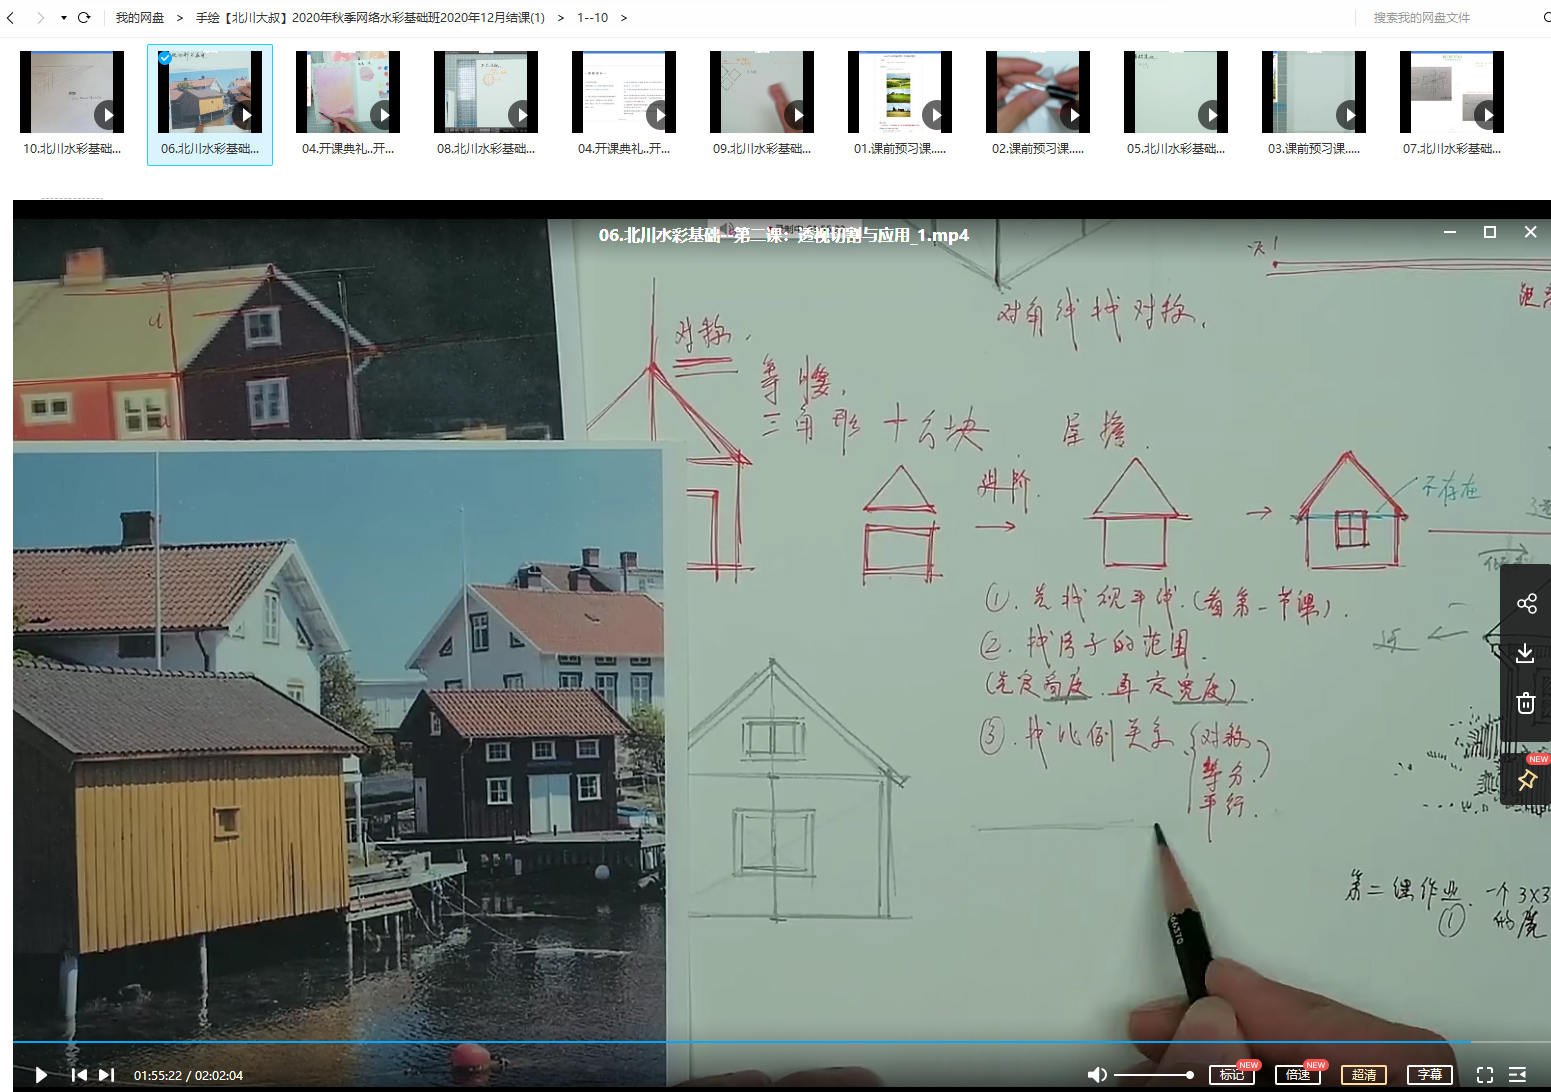 我的网盘 > 手绘【北川大叔】2020年秋季网络水彩基础班2020年12月结课(1) > 1--10 >
搜索我的网盘文件
10.北川水彩基础...
06.北川水彩基础...
04.开课典礼..开...
08.北川水彩基础...
04.开课典礼..开...
09.北川水彩基础...
01.课前预习课.....
02.课前预习课.....
05.北川水彩基础...
03.课前预习课.....
07.北川水彩基础...
06.北川水彩基础--第二课：透视切割与应用_1.mp4
对角线找对称.
对称.
等腰.
三角形 + 方块
屋檐.
进阶.
不存在
①. 先找视平线.(看第一节课).
②. 找房子的范围.
(先定高度.再定宽度).
③. 找比例关系(对称
等分.
平行.
近
第二课作业. 一个3X3
① 的魔
NEW
01:55:22 / 02:02:04
标记
NEW
倍速
NEW
超清
字幕